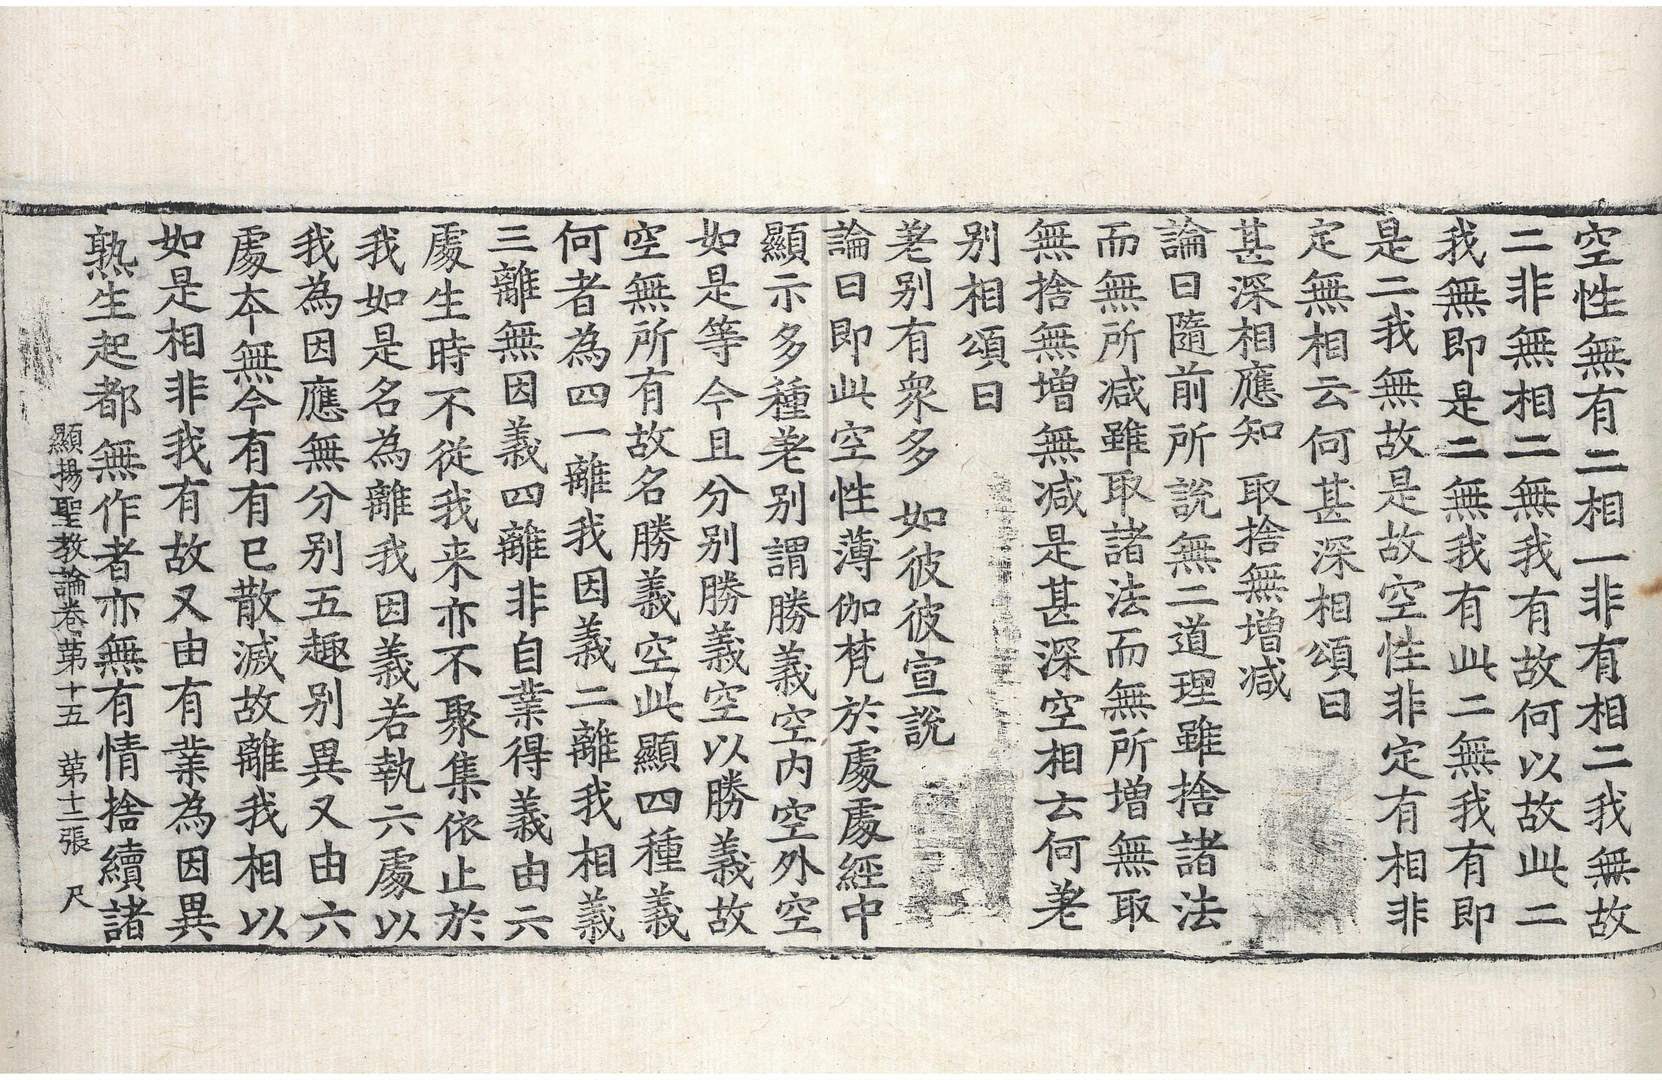 空性無有二相一非有相二我無故
二非無相二無我有故何以故此二
我無即是二無我有此二無我有即
是二我無故是故空性非定有相非
定無相云何甚深相頌曰
甚深相應知 取捨無增减
論曰隨前所說無二道理雖捨諸法
而無所减雖取諸法而無所增無取
無捨無增無减是甚深空相云何差
別相頌曰
差別有衆多 如彼彼宣說
論曰即此空性薄伽梵於處處經中
顯示多種差別謂勝義空內空外空
如是等今且分別勝義空以勝義故
空無所有故名勝義空此顯四種義
何者為四一離我因義二離我相義
三離無因義四離非自業得義由六
處生時不從我来亦不聚集依止於
我如是名為離我因義若執六處以
我為因應無分別五趣別異又由六
處本無今有有已散滅故離我相以
如是相非我有故又由有業為因異
熟生起都無作者亦無有情捨續諸
顯揚聖教論卷第十五 第十二張 尺